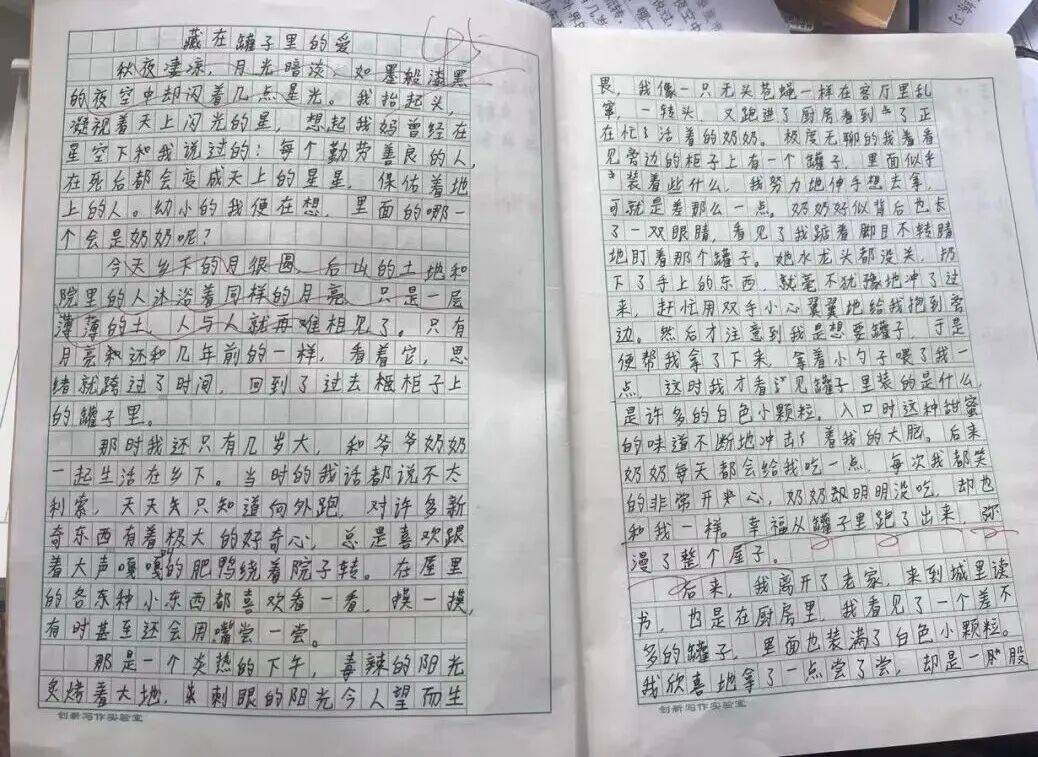 藏在罐子里的爱
秋夜凄凉，月光暗淡，如墨般漆黑
的夜空中却闪着几点星光。我抬起头，
凝视着天上闪光的星，想起我妈曾经在
星空下和我说过的：每个勤劳善良的人，
在死后都会变成天上的星星，保佑着地
上的人。幼小的我便在想，里面的哪一
个会是奶奶呢？
今天乡下的月很圆，后山的土地和
院里的人沐浴着同样的月亮，只是一层
薄薄的土，人与人就再难相见了。只有
月亮还和几年前的一样，看着它，思
绪就跨过了时间，回到了过去柜子上
的罐子里。
那时我还只有几岁大，和爷爷奶奶
一起生活在乡下。当时的我话都说不太
利索，天天只知道向外跑，对许多新
奇东西有着极大的好奇心，总是喜欢跟
着大声嘎嘎叫的肥鸭绕着院子转。在屋里
的各种小东西都喜欢看一看，摸一摸，
有时甚至还会用嘴尝一尝。
那是一个炎热的下午，毒辣的阳光
炙烤着大地，刺眼的阳光令人望而生
创新写作实验室
畏，我像一只无头苍蝇一样在客厅里乱
窜，一转头，又跑进了厨房看到了正
在忙活着的奶奶。极度无聊的我看看
见旁边的柜子上有一个罐子，里面似乎
装着些什么，我努力地伸手想去拿，
可就是差那么一点。奶奶好似背后也长
了一双眼睛，看见了我踮着脚目不转睛
地盯着那个罐子。她水龙头都没关，扔
下了手上的东西，就毫不犹豫地冲了过
来，赶忙用双手小心翼翼地给我抱到旁
边。然后才注意到我是想要罐子，于是
便帮我拿了下来，拿着小勺子喂了我一
点，这时我才看见罐子里装的是什么，
是许多的白色小颗粒，入口时这种甜蜜
的味道不断地冲击着我的大脑。后来
奶奶每天都会给我吃一点，每次我都笑
的非常开心，奶奶明明没吃，却也
和我一样。幸福从罐子里跑了出来，弥
漫了整个屋子。
后来，我离开了老家，来到城里读
书，也是在厨房里，我看见了一个差不
多的罐子，里面也装满了白色小颗粒。
我欣喜地拿了一点尝了尝，却是一股
创新写作实验室